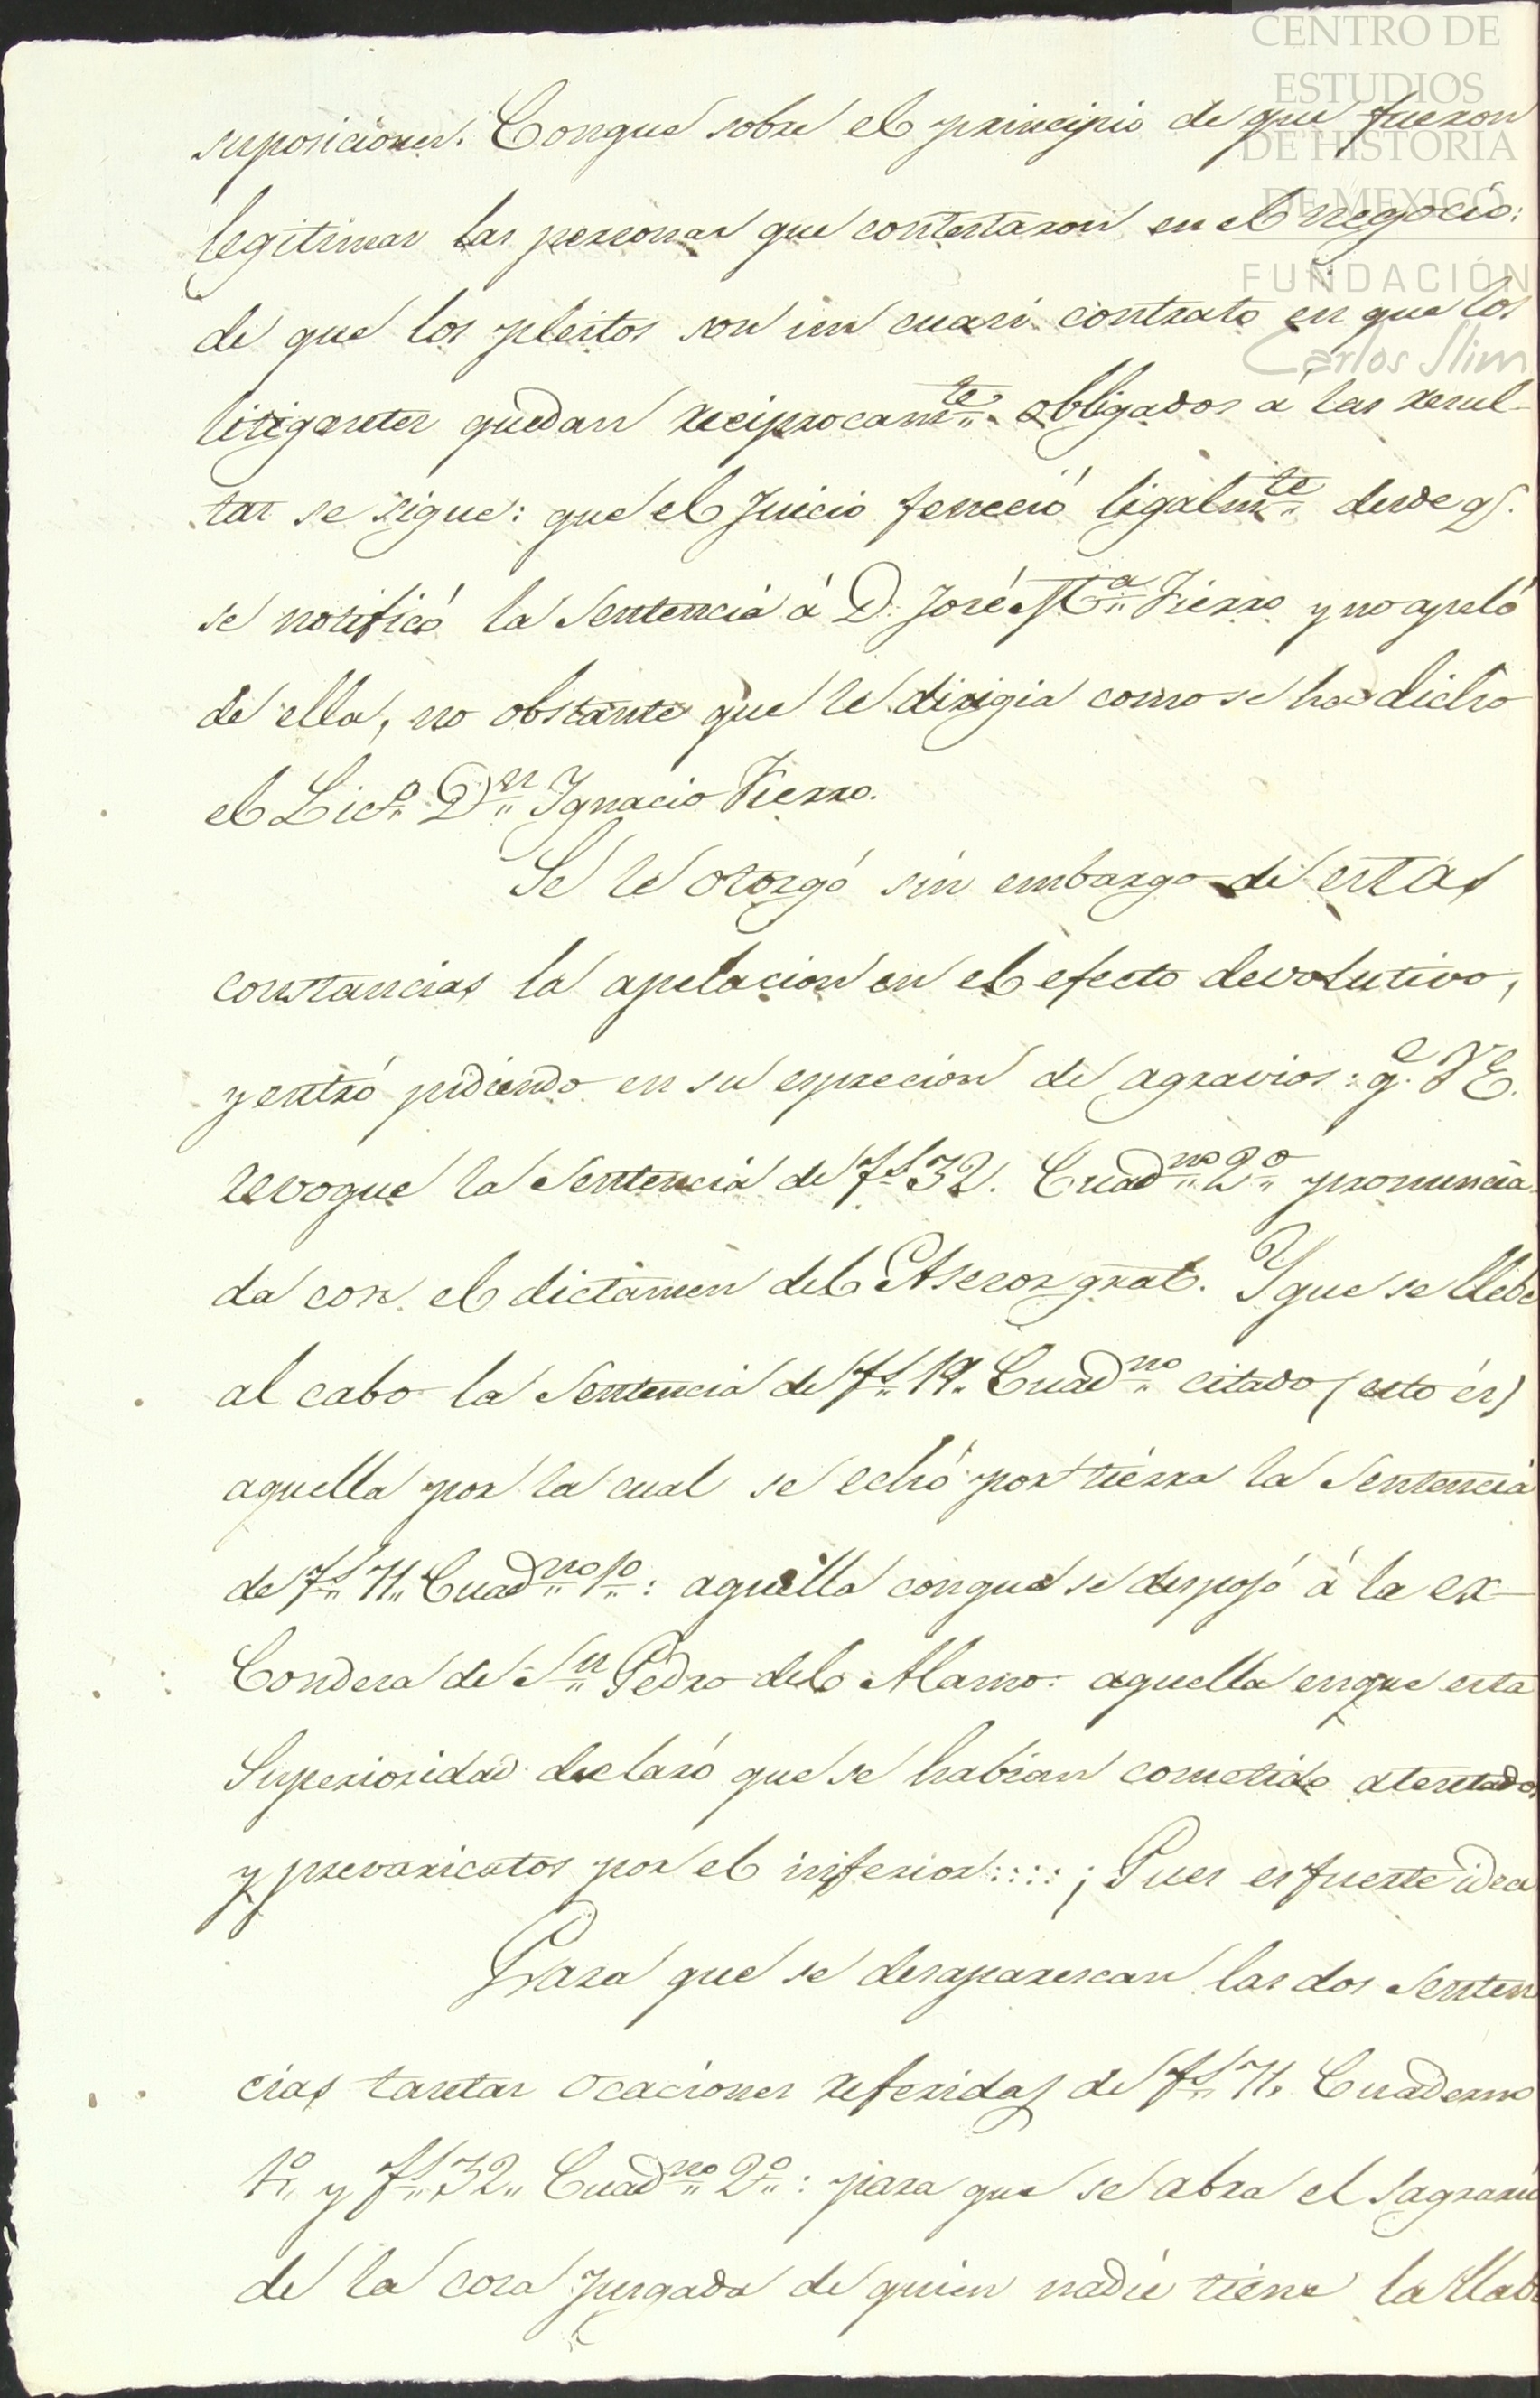 CENTRO DE
ESTUDIOS
DE HISTORIA
DE MEXICO
FUNDACIÓN
Carlos Slim
suposiciones. Conque sobre el principio de que fueron
legitimas las personas que contestaron en el negocio:
de que los pleitos son un cuasi contrato en que los
litigantes quedan reciprocam.te obligados á las resul-
tas se sigue: que el Juicio feneció ligalm.te desde q.
se notificó la Sentencia á D. José M.a Fierro y no apeló
de ella, no obstante que le dirigia como se ha dicho
el Lic.o D.n Ignacio Fierro.
Se le otorgó sin embargo de estas
constancias la apelacion en el efecto devolutivo,
y entró pidiendo en su exprecion de agravios: q.e V.E.
revoque la Sentencia de f.s 32. Cuad.no 2.o pronuncia-
da con el dictamen del Asesor gral. Y que se llebe
al cabo la Sentencia de f.s 19. Cuad.no citado (esto és)
aquella por la cual se echó por tiérra la Sentencia
de f.s 71. Cuad.no 1.o: aquella conque se despojó á la ex-
Condesa de S.n Pedro del Alamo: aquella enque esta
Superioridad declaró que se habian cometido atentados
y prevaricatos por el inferior::::; Pues es fuerte idea
Para que se desaparescan las dos Senten
cias tantas ocaciones referidas de f.s 71. Cuaderno
1.o y f.s 32. Cuad.no 2.o: para que se abra el sagrario
de la cosa jusgada de quien nadie tiene la llabe